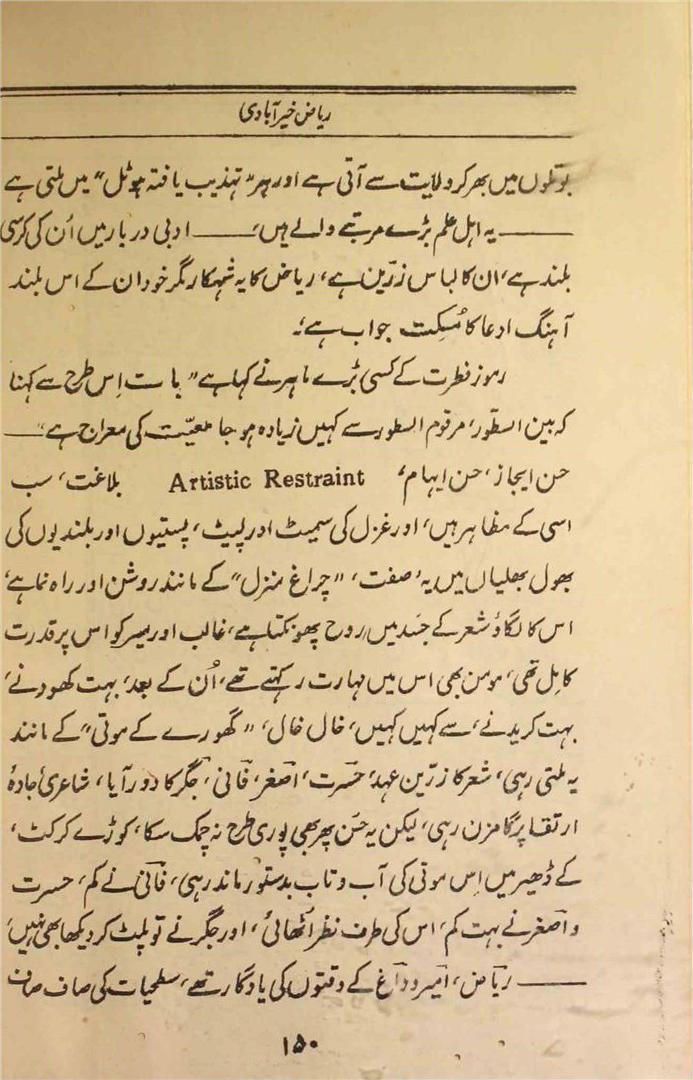 ریاض خیرآبادی
بوتلوں میں بھر کر ولایت سے آتی ہے اور پھر "تہذیب یافتہ ہوٹل" میں ملتی ہے
——— یہ اہل علم بڑے مرتبے والے ہیں، ——— ادبی دربار میں اُن کی کرسی
بلند ہے، ان کا لباس زرّین ہے، ریاض کا یہ شہکار مگر خود ان کے اس بلند
آہنگ ادعا کا مُسکِت جواب ہے۔
رموز فطرت کے کسی بڑے ماہر نے کہا ہے "بات اِس طرح سے کہنا
کہ بین السطور، مرقوم السطور سے کہیں زیادہ ہو جامعیّت کی معراج ہے" ——
حسن ایجاز، حسن ایہام، Artistic Restraint بلاغت، سب
اسی کے مظاہر ہیں، اور غزل کی سمیٹ اور لپیٹ، پستیوں اور بلندیوں کی
بھول بھلیاں میں یہ، صفت، "چراغ منزل" کے مانند روشن اور راہ نما ہے،
اس کا لگاؤ شعر کے جسَد میں روح پھونکتا ہے، غالب اور میر کو اس پر قدرت
کامل تھی، مومن بھی اس میں مہارت رکھتے تھے، اُن کے بعد، بہت کھودنے،
بہت کریدنے، سے کہیں کہیں، خال خال، "گھورے کے موتی" کے مانند
یہ ملتی رہی، شعر کا زرّین عہد، حسرت، اصغر، فانی، جگر کا دور آیا، شاعری جادۂ
ارتقا پر گامزن رہی، لیکن یہ حسن پھر بھی پوری طرح نہ چمک سکا، کوڑے کرکٹ،
کے ڈھیر میں اِس موتی کی آب و تاب بدستور ماند رہی، فانی نے کم، حسرت
و اصغر نے بہت کم، اس کی طرف نظر اٹھائی، اور جگر نے تو پلٹ کر دیکھا بھی نہیں،
——— ریاض، امیر و داغ کے وقتوں کی یادگار تھے، سطحیات کی صاف صاف
۱۵۰